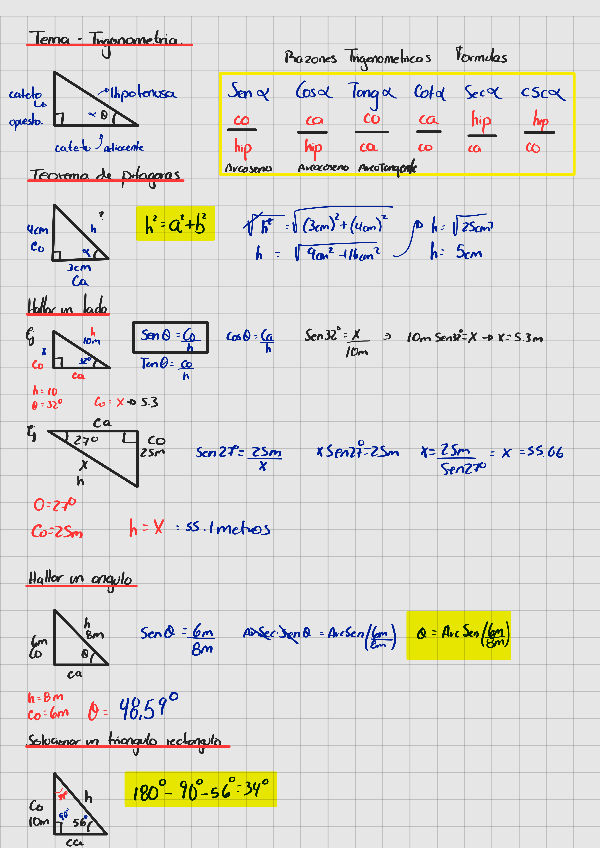 Tema - Trigonometria.
Razones Trigonometricas Formulas
cateto opuesto.
Hipotenusa
α θ
cateto adiacente
Sen α Cos α Tang α Cot α Sec α csc α
co/hip ca/hip co/ca ca/co hip/ca hip/co
Arcoseno Arcocoseno ArcoTangente
Teorema de pitagoras
4cm
Co
h ?
α
3cm
Ca
h² = a² + b²
√h² = √(3cm)² + (4cm)²
h = √9cm² + 16cm²
h = √25cm²
h = 5cm
Hallar un lado
Ej
h
10m
x
Co
32°
ca
Sen θ = Co/h
cos θ = Ca/h
Tan θ = co/h
Sen 32° = x/10m ⇒ 10m Sen 32° = x → x = 5.3m
h = 10
θ = 32°
Co = x → 5.3
Ej
Ca
27°
Co
25m
x
h
Sen 27° = 25m/x
x Sen 27° = 25m
x = 25m/Sen 27° = x = 55.06
O = 27°
Co = 25m
h = x = 55.1 metros
Hallar un angulo
6m
Co
h
8m
θ
ca
Sen θ = 6m/8m
= ArcSen (6m/8m)
θ = ArcSen (6m/8m)
h = 8m
Co = 6m
θ = 48,59°
Solucionar un triangulo rectangulo
Co
10m
h
90°
56°
ca
180° - 90° - 56° = 34°